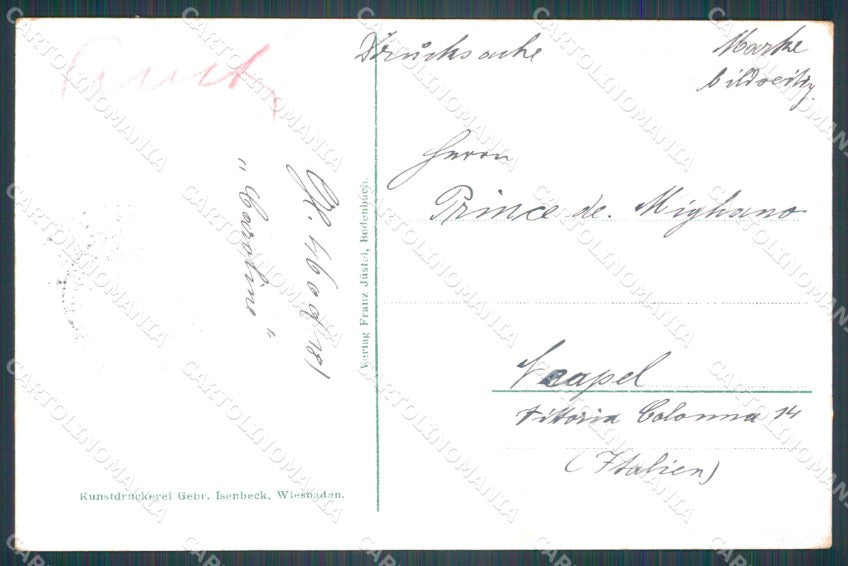 Drucksache
Marke
bildseitig.
Herrn
Prince de. Migliano
Neapel
Vittoria Colonna 14
(Italien)
"Caroline"
Verlag Franz Jüstel, Bodenbach.
Kunstdruckerei Gebr. Isenbeck, Wiesbaden.
CARTOLINOMANIA